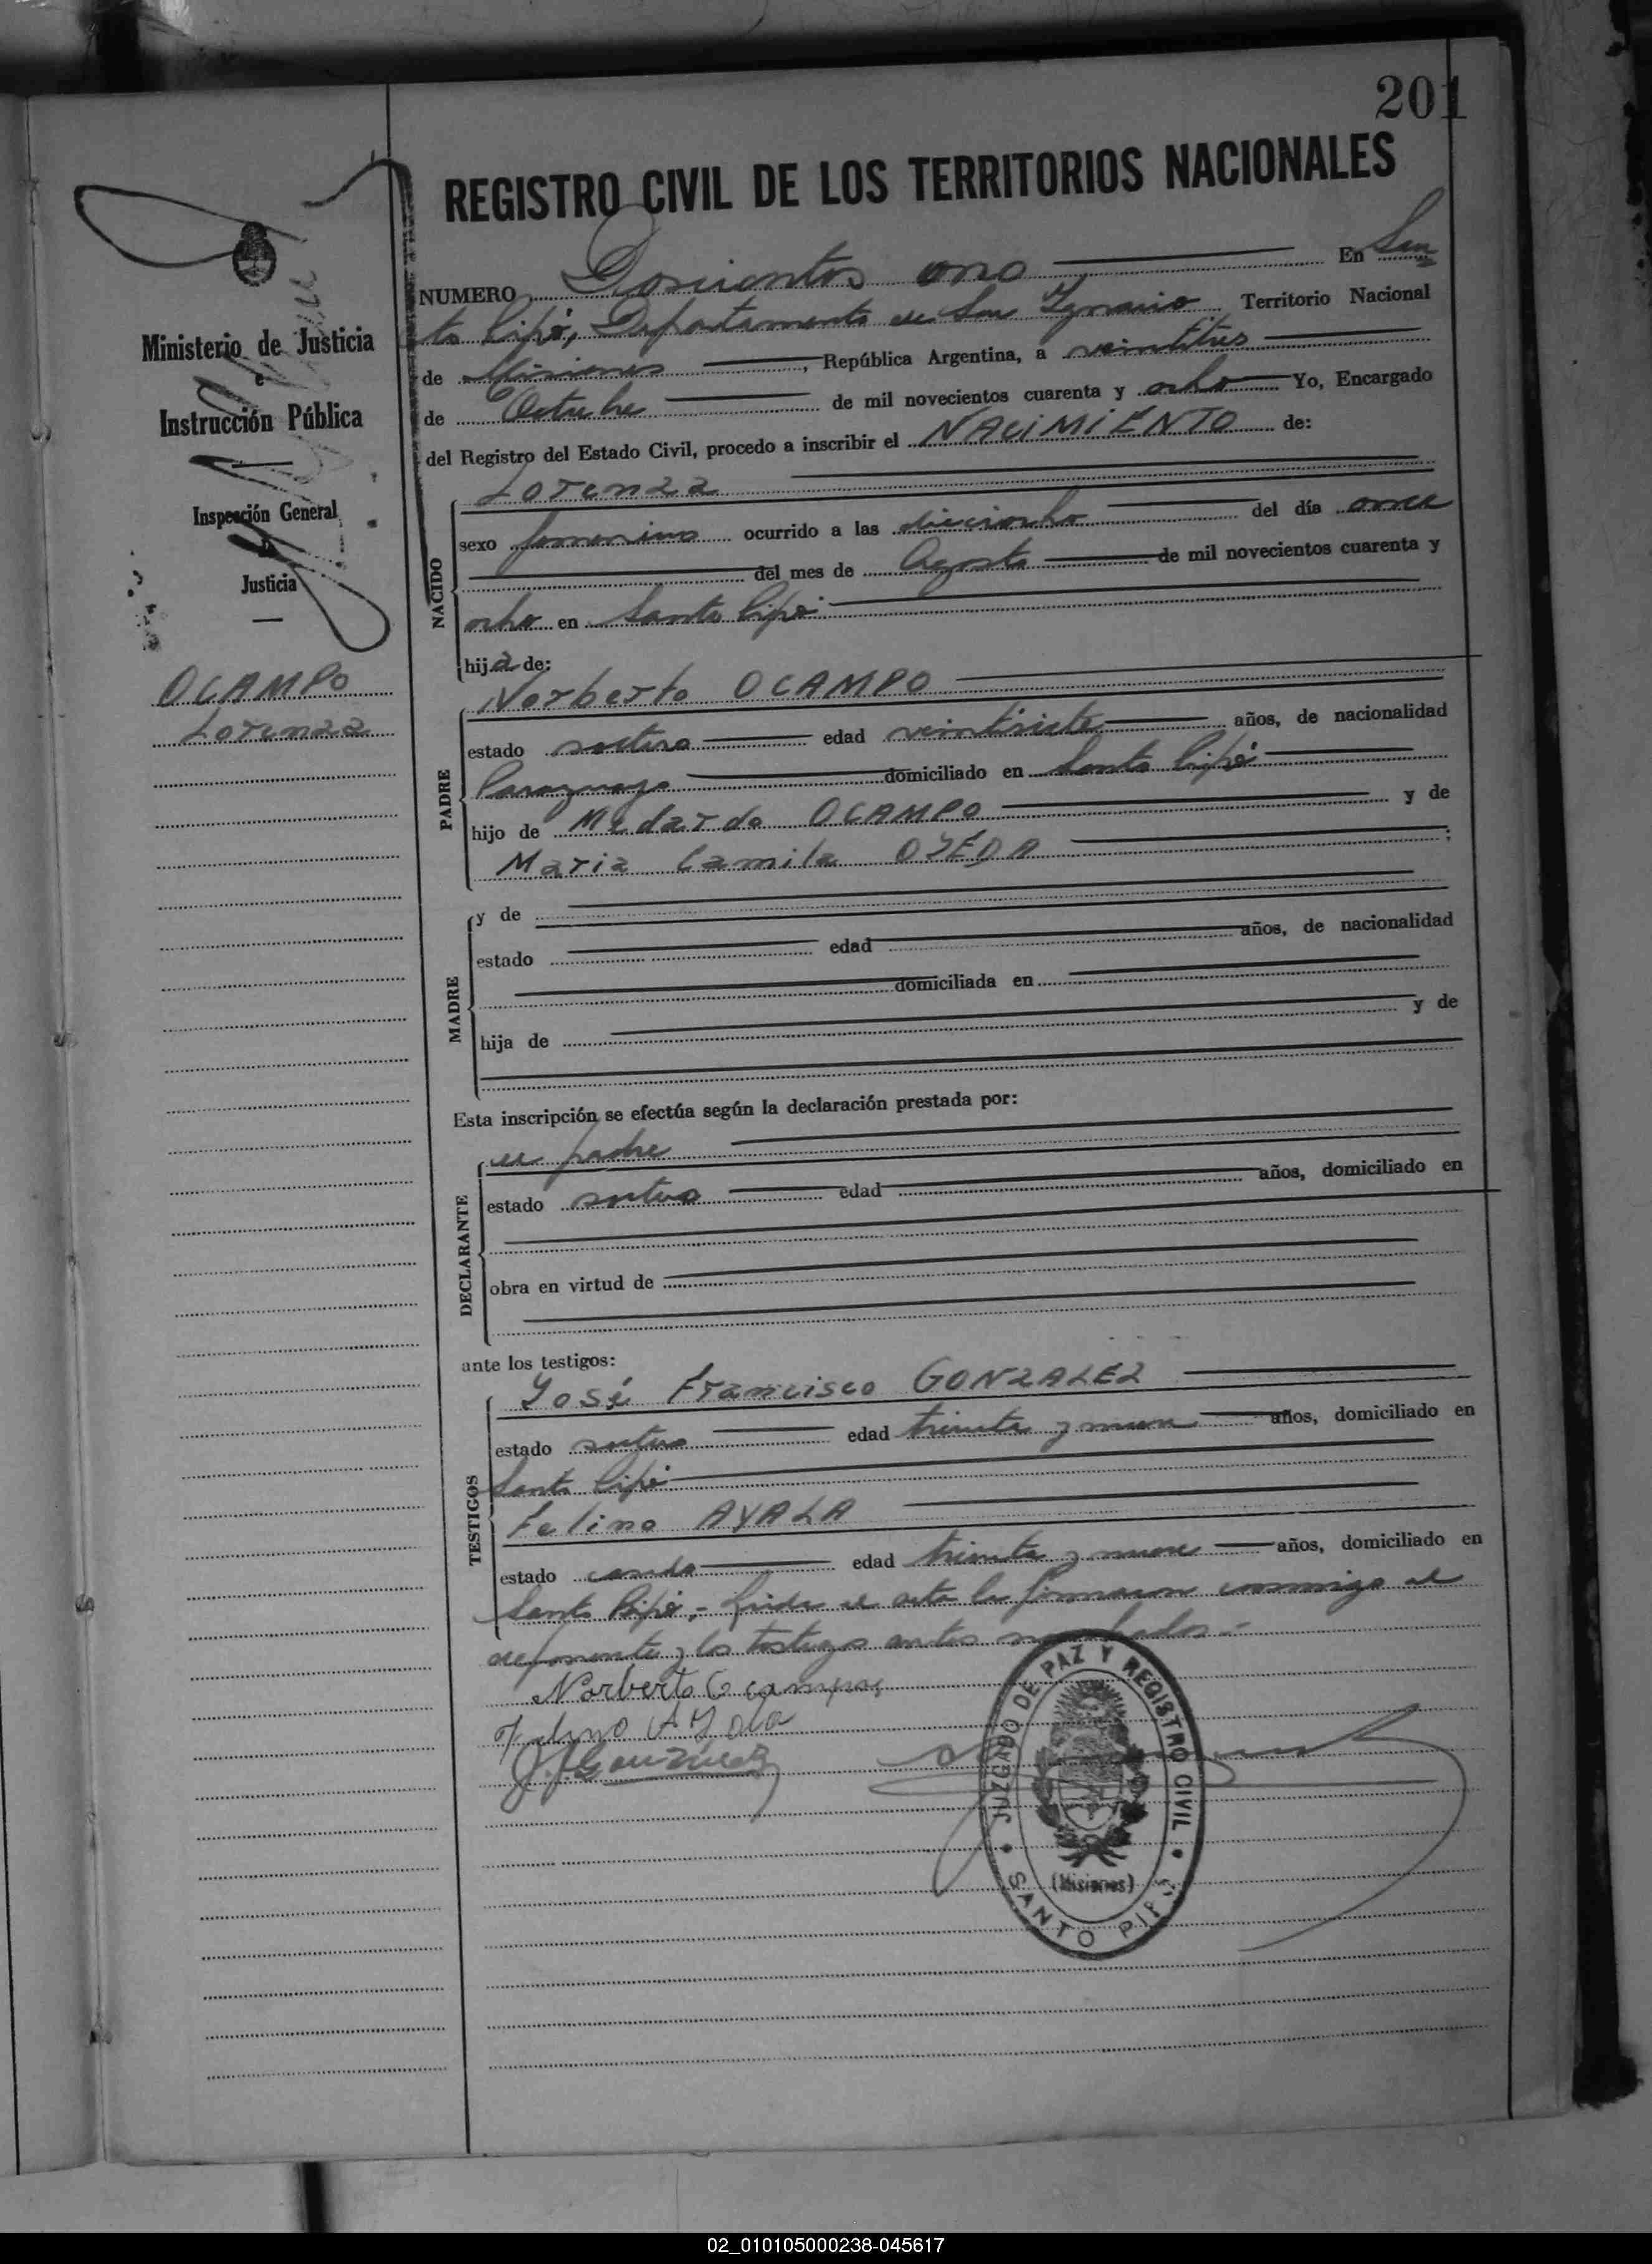 201
REGISTRO CIVIL DE LOS TERRITORIOS NACIONALES
NUMERO Doscientos uno En San
to Pipó, Departamento de San Ignacio Territorio Nacional
de Misiones, República Argentina, a veintitres
de Octubre de mil novecientos cuarenta y ocho Yo, Encargado
del Registro del Estado Civil, procedo a inscribir el NACIMIENTO de:
Ministerio de Justicia
e
Instrucción Pública
Inspección General
de
Justicia
OCAMPO
Lorenza
NACIDO
Lorenza
sexo femenino ocurrido a las dieciocho del día once
del mes de Agosto de mil novecientos cuarenta y
ocho en Santo Pipó
hija de:
PADRE
Norberto OCAMPO
estado soltero edad veintisiete años, de nacionalidad
Paraguayo domiciliado en Santo Pipó
hijo de Medardo OCAMPO y de
Maria Camila OJEDA ;
MADRE
y de
estado edad años, de nacionalidad
domiciliada en
hija de y de
Esta inscripción se efectúa según la declaración prestada por:
DECLARANTE
el padre
estado soltero edad años, domiciliado en
obra en virtud de
ante los testigos:
TESTIGOS
José Francisco GONZALEZ
estado soltero edad treinta y nueve años, domiciliado en
Santo Pipó
Felino AYALA
estado casado edad treinta y nueve años, domiciliado en
Santo Pipó.- Leida el acta la firmaron conmigo el
deponente y los testigos antes
Norberto Ocampos
Felino AYala
J. F. Gonzalez
JUZGADO DE PAZ Y REGISTRO CIVIL
(Misiones)
SANTO PIPÓ
02_010105000238-045617